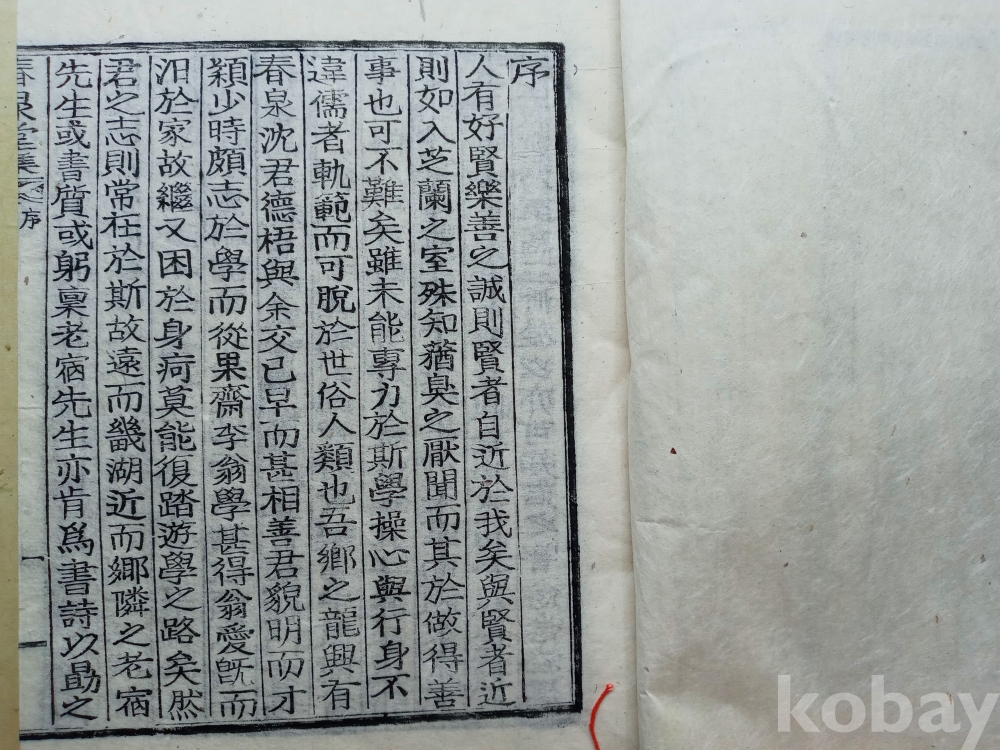 序
人有好賢樂善之誠則賢者自近於我矣與賢者近
則如入芝蘭之室殊知蕕臭之厭聞而其於做得善
事也可不難矣雖未能專力於斯學操心與行身不
違儒者軌範而可脫於世俗人類也吾鄉之龍興有
春泉沈君德梧與余交已早而甚相善君貌明而才
穎少時頗志於學而從果齋李翁學甚得翁愛旣而
汨於家故繼又困於身疴莫能復踏游學之路矣然
君之志則常在於斯故遠而畿湖近而鄉隣之老宿
先生或書質或躬稟老宿先生亦肯爲書詩以勗之
春泉堂集之序
一
kobay